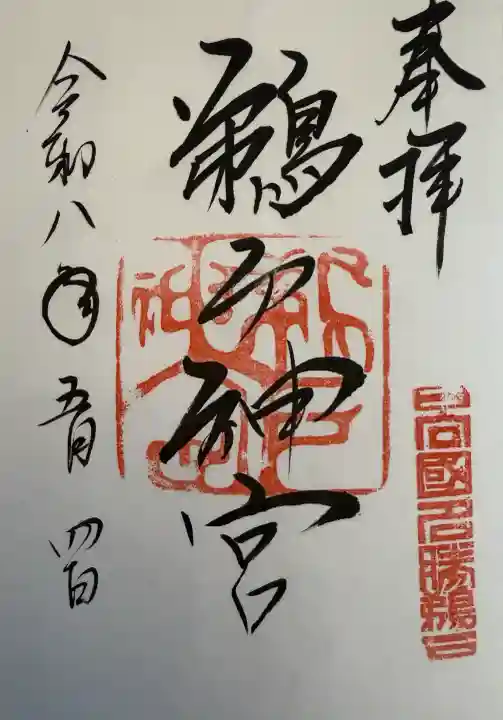 奉拝
日向國名勝鵜戸
鵜戸神宮
令和八年五月四日